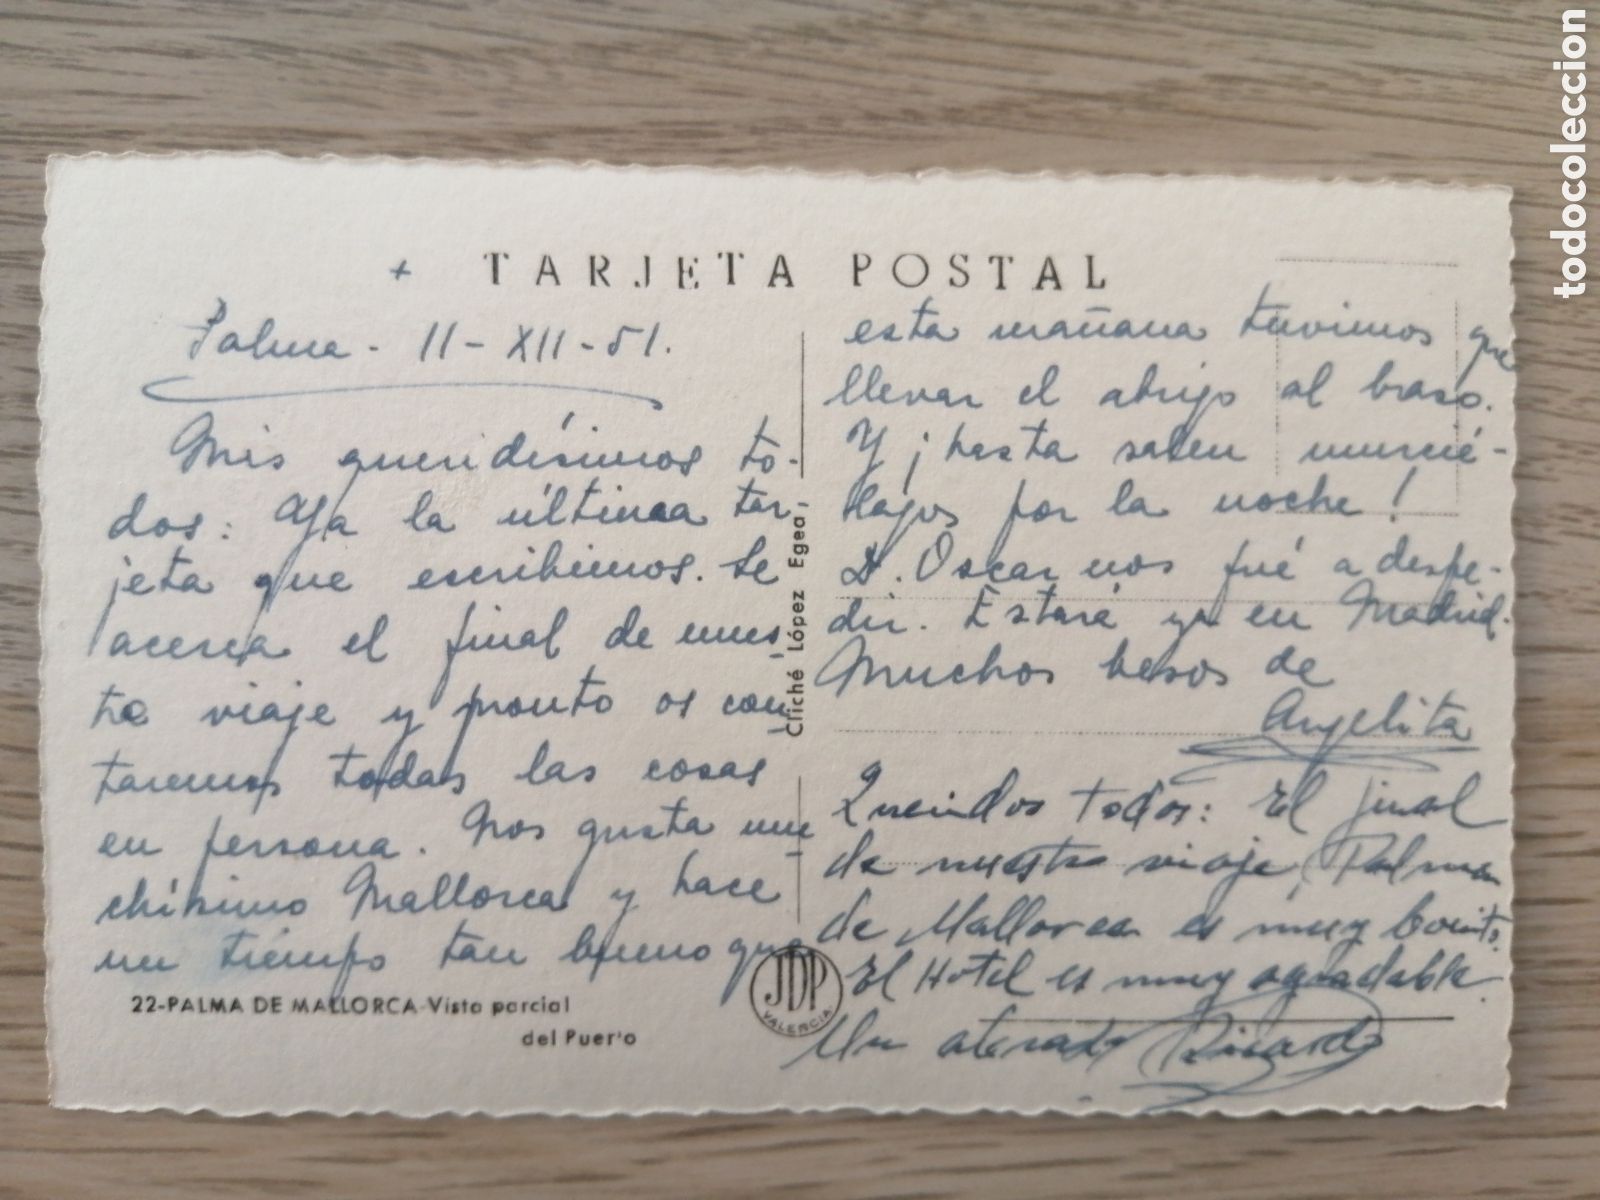 + TARJETA POSTAL
Palma - 11 - XII - 51.
Mis queridísimos to-
dos: Ya la última tar-
jeta que escribimos. Se
acerca el final de nues-
tro viaje y pronto os con-
taremos todas las cosas
en persona. Nos gusta mu-
chísimo Mallorca y hace
un tiempo tan bueno que
22-PALMA DE MALLORCA-Vista parcial
del Puerto
Cliché López Egea
JDP
VALENCIA
esta mañana tuvimos que
llevar el abrigo al braso.
Y ¡hasta salen murcié-
lagos por la noche!
D. Oscar nos fué a despe-
dir. Estará ya en Madrid.
Muchos besos de
Angelita
Queridos todos: El final
de nuestro viaje, Palma
de Mallorca es muy bonito.
El Hotel es muy agradable.
Un abrazo Ricardo
todocoleccion